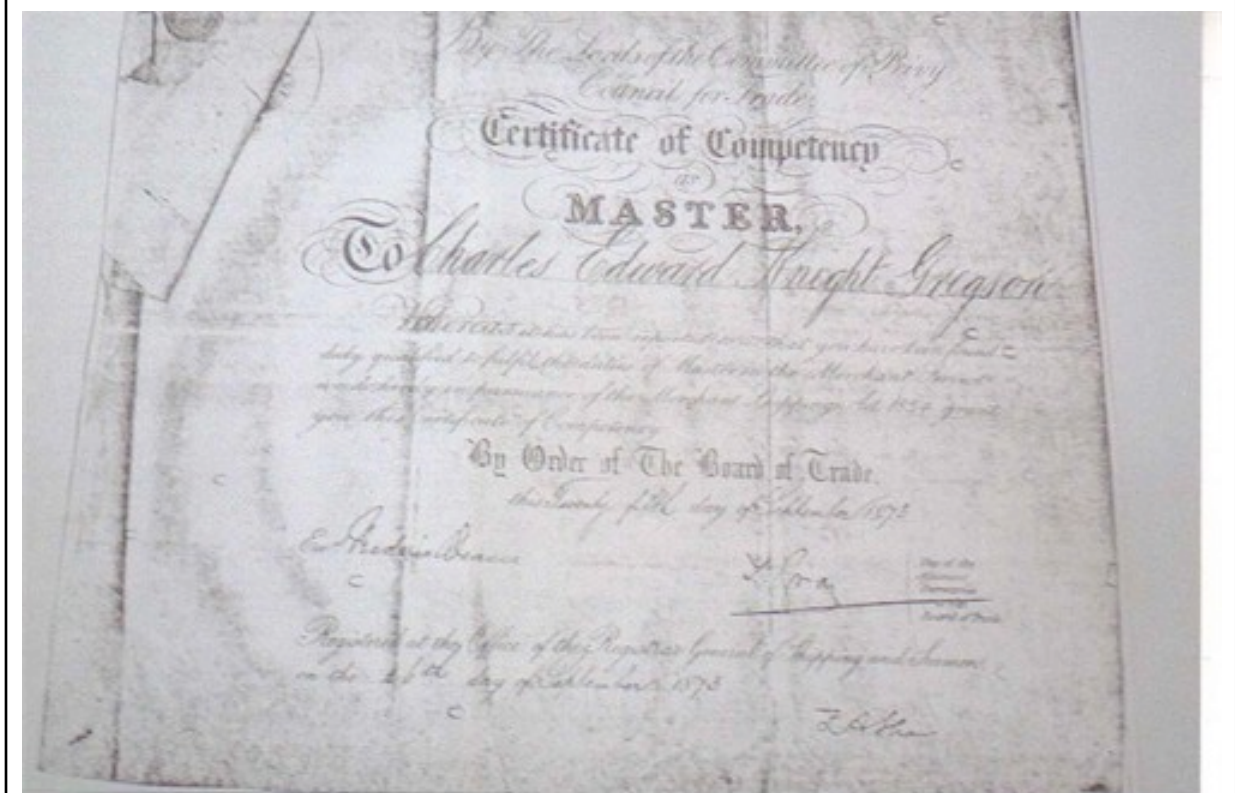 By The Lords of the Committee of Privy
Council for Trade.
Certificate of Competency
as
MASTER,
To Charles Edward Knight Grigson
Whereas it has been reported to us that you have been found
duly qualified to fulfil the duties of Master in the Merchant Service
we do hereby in pursuance of the Merchant Shipping Act 1854 grant
you this Certificate of Competency
By Order of The Board of Trade.
this Twenty fifth day of September 1873
Registered at the Office of the Registrar General of Shipping and Seamen
on the 26th day of September 1873